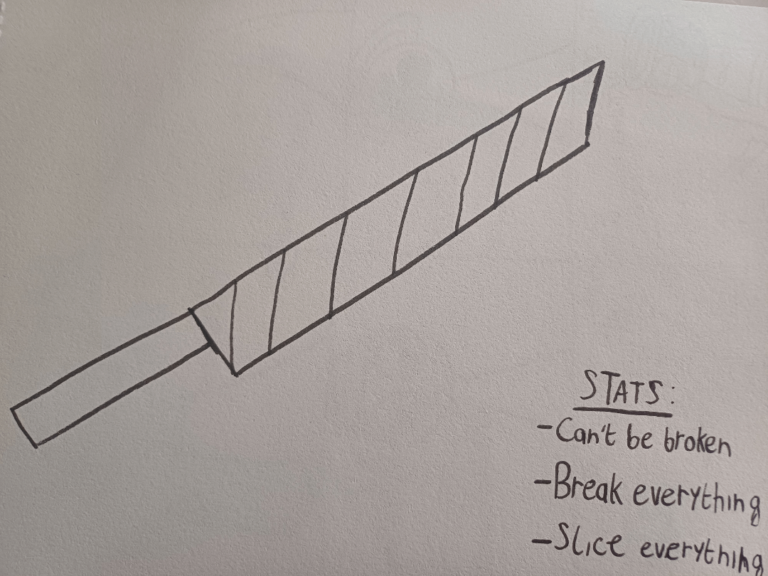 STATS:
-Can't be broken
-Break everything
-Slice everything